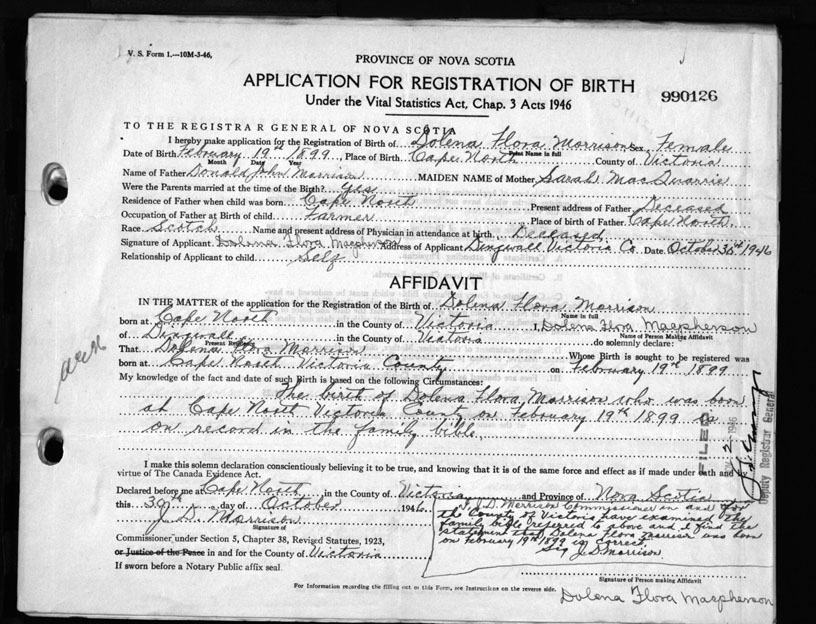 V. S. Form 1.—10M-3-46.
PROVINCE OF NOVA SCOTIA
APPLICATION FOR REGISTRATION OF BIRTH
Under the Vital Statistics Act, Chap. 3 Acts 1946
990126
TO THE REGISTRAR GENERAL OF NOVA SCOTIA
I hereby make application for the Registration of Birth of Dolena Flora Morrison Sex Female
Print Name in full
Date of Birth February 19th 1899, Place of Birth Cape North County of Victoria
Month Date Year
Name of Father Donald John Morrison MAIDEN NAME of Mother Sarah MacQuarrie
Were the Parents married at the time of the Birth? Yes
Residence of Father when child was born Cape North Present address of Father Deceased
Occupation of Father at Birth of child Farmer Place of birth of Father Cape North
Race Scotch Name and present address of Physician in attendance at birth Deceased
Signature of Applicant Dolena Flora Macpherson Address of Applicant Dingwall Victoria Co. Date October 30th 1946
Relationship of Applicant to child Self
AFFIDAVIT
IN THE MATTER of the application for the Registration of the Birth of Dolena Flora Morrison
Name in full
born at Cape North in the County of Victoria I, Dolena Flora Macpherson
Name of Person Making Affidavit
of Dingwall in the County of Victoria do solemnly declare:
Present Residence
That Dolena Flora Morrison Whose Birth is sought to be registered was
born at Cape North Victoria County on February 19th 1899
My knowledge of the fact and date of such Birth is based on the following Circumstances:
The birth of Dolena Flora Morrison who was born
at Cape North Victoria County on February 19th 1899 is
on record in the family bible.
FILED
2 1946
Deputy Registrar General
I make this solemn declaration conscientiously believing it to be true, and knowing that it is of the same force and effect as if made under oath and by
virtue of The Canada Evidence Act.
Declared before me at Cape North in the County of Victoria and Province of Nova Scotia
this 30th day of October 1946
J. D. Morrison
Signature of
Commissioner under Section 5, Chapter 38, Revised Statutes, 1923,
or Justice of the Peace in and for the County of Victoria
If sworn before a Notary Public affix seal
I J. D. Morrison Commissioner in and for
the County of Victoria have examined the
family bible referred to above and I find the
statement that Dolena Flora Morrison was born
on February 19th 1899 is correct.
Sig J. D. Morrison.
Signature of Person making Affidavit
For Information regarding the filling out of this Form, see Instructions on the reverse side.
Dolena Flora Macpherson